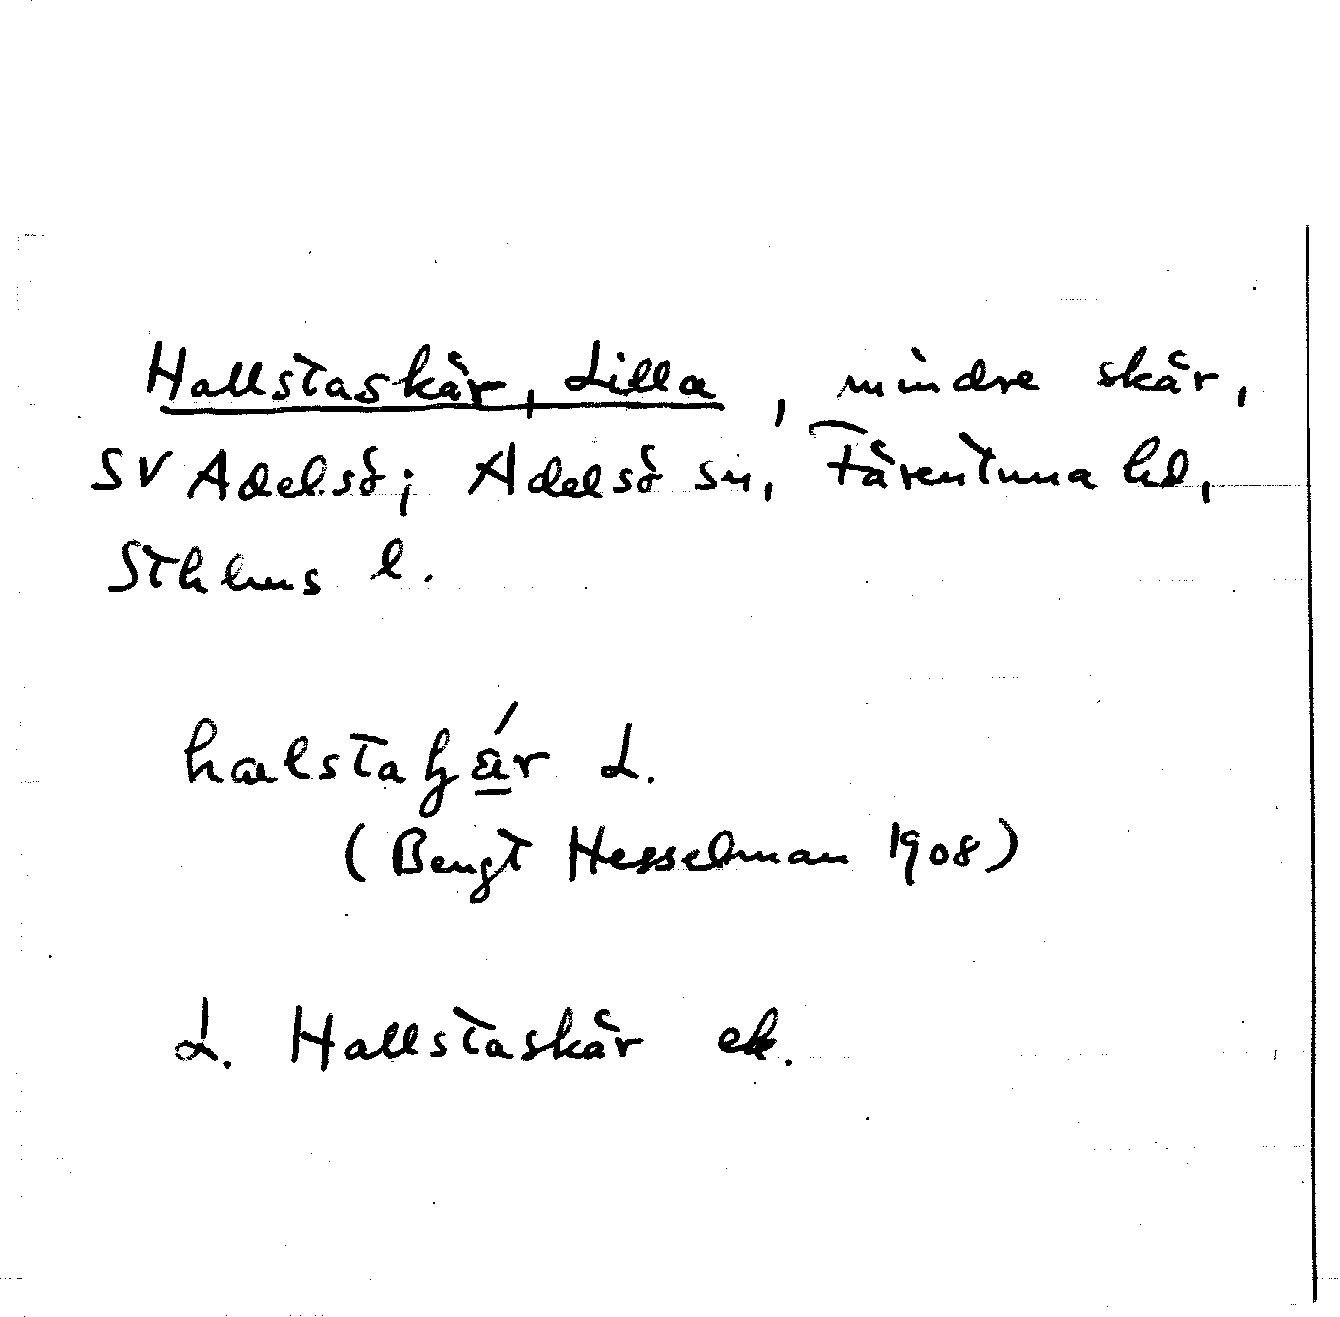 Hallstaskär, Lilla, mindre skär,
SV Adelsö; Adelsö sn, Färentuna hd,
Sthlms l.
L.
(Bengt Hesselman 1908)
L. Hallstaskär ek.